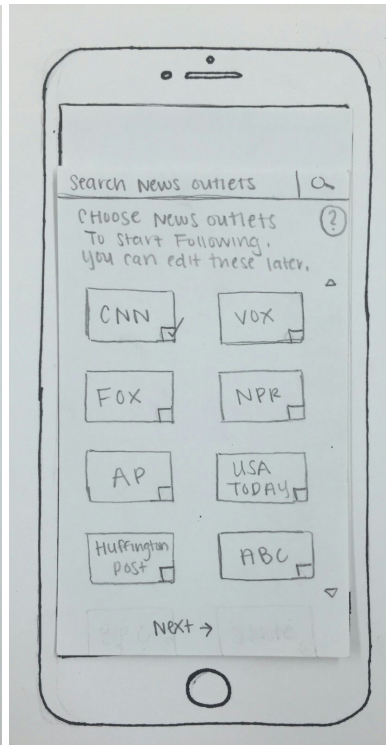 Search News outlets
CHOOSE News outlets
To Start Following.
you can edit these later.
?
CNN
VOX
FOX
NPR
AP
USA
TODAY
Huffington
Post
ABC
Next →